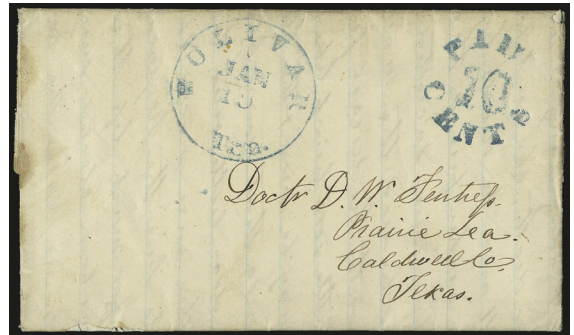 BOLIVAR
JAN
15
Ten.
PAID
10
CENTS
Doctr D. W. Fentress.
Prairie Lea.
Caldwell Co,
Texas.